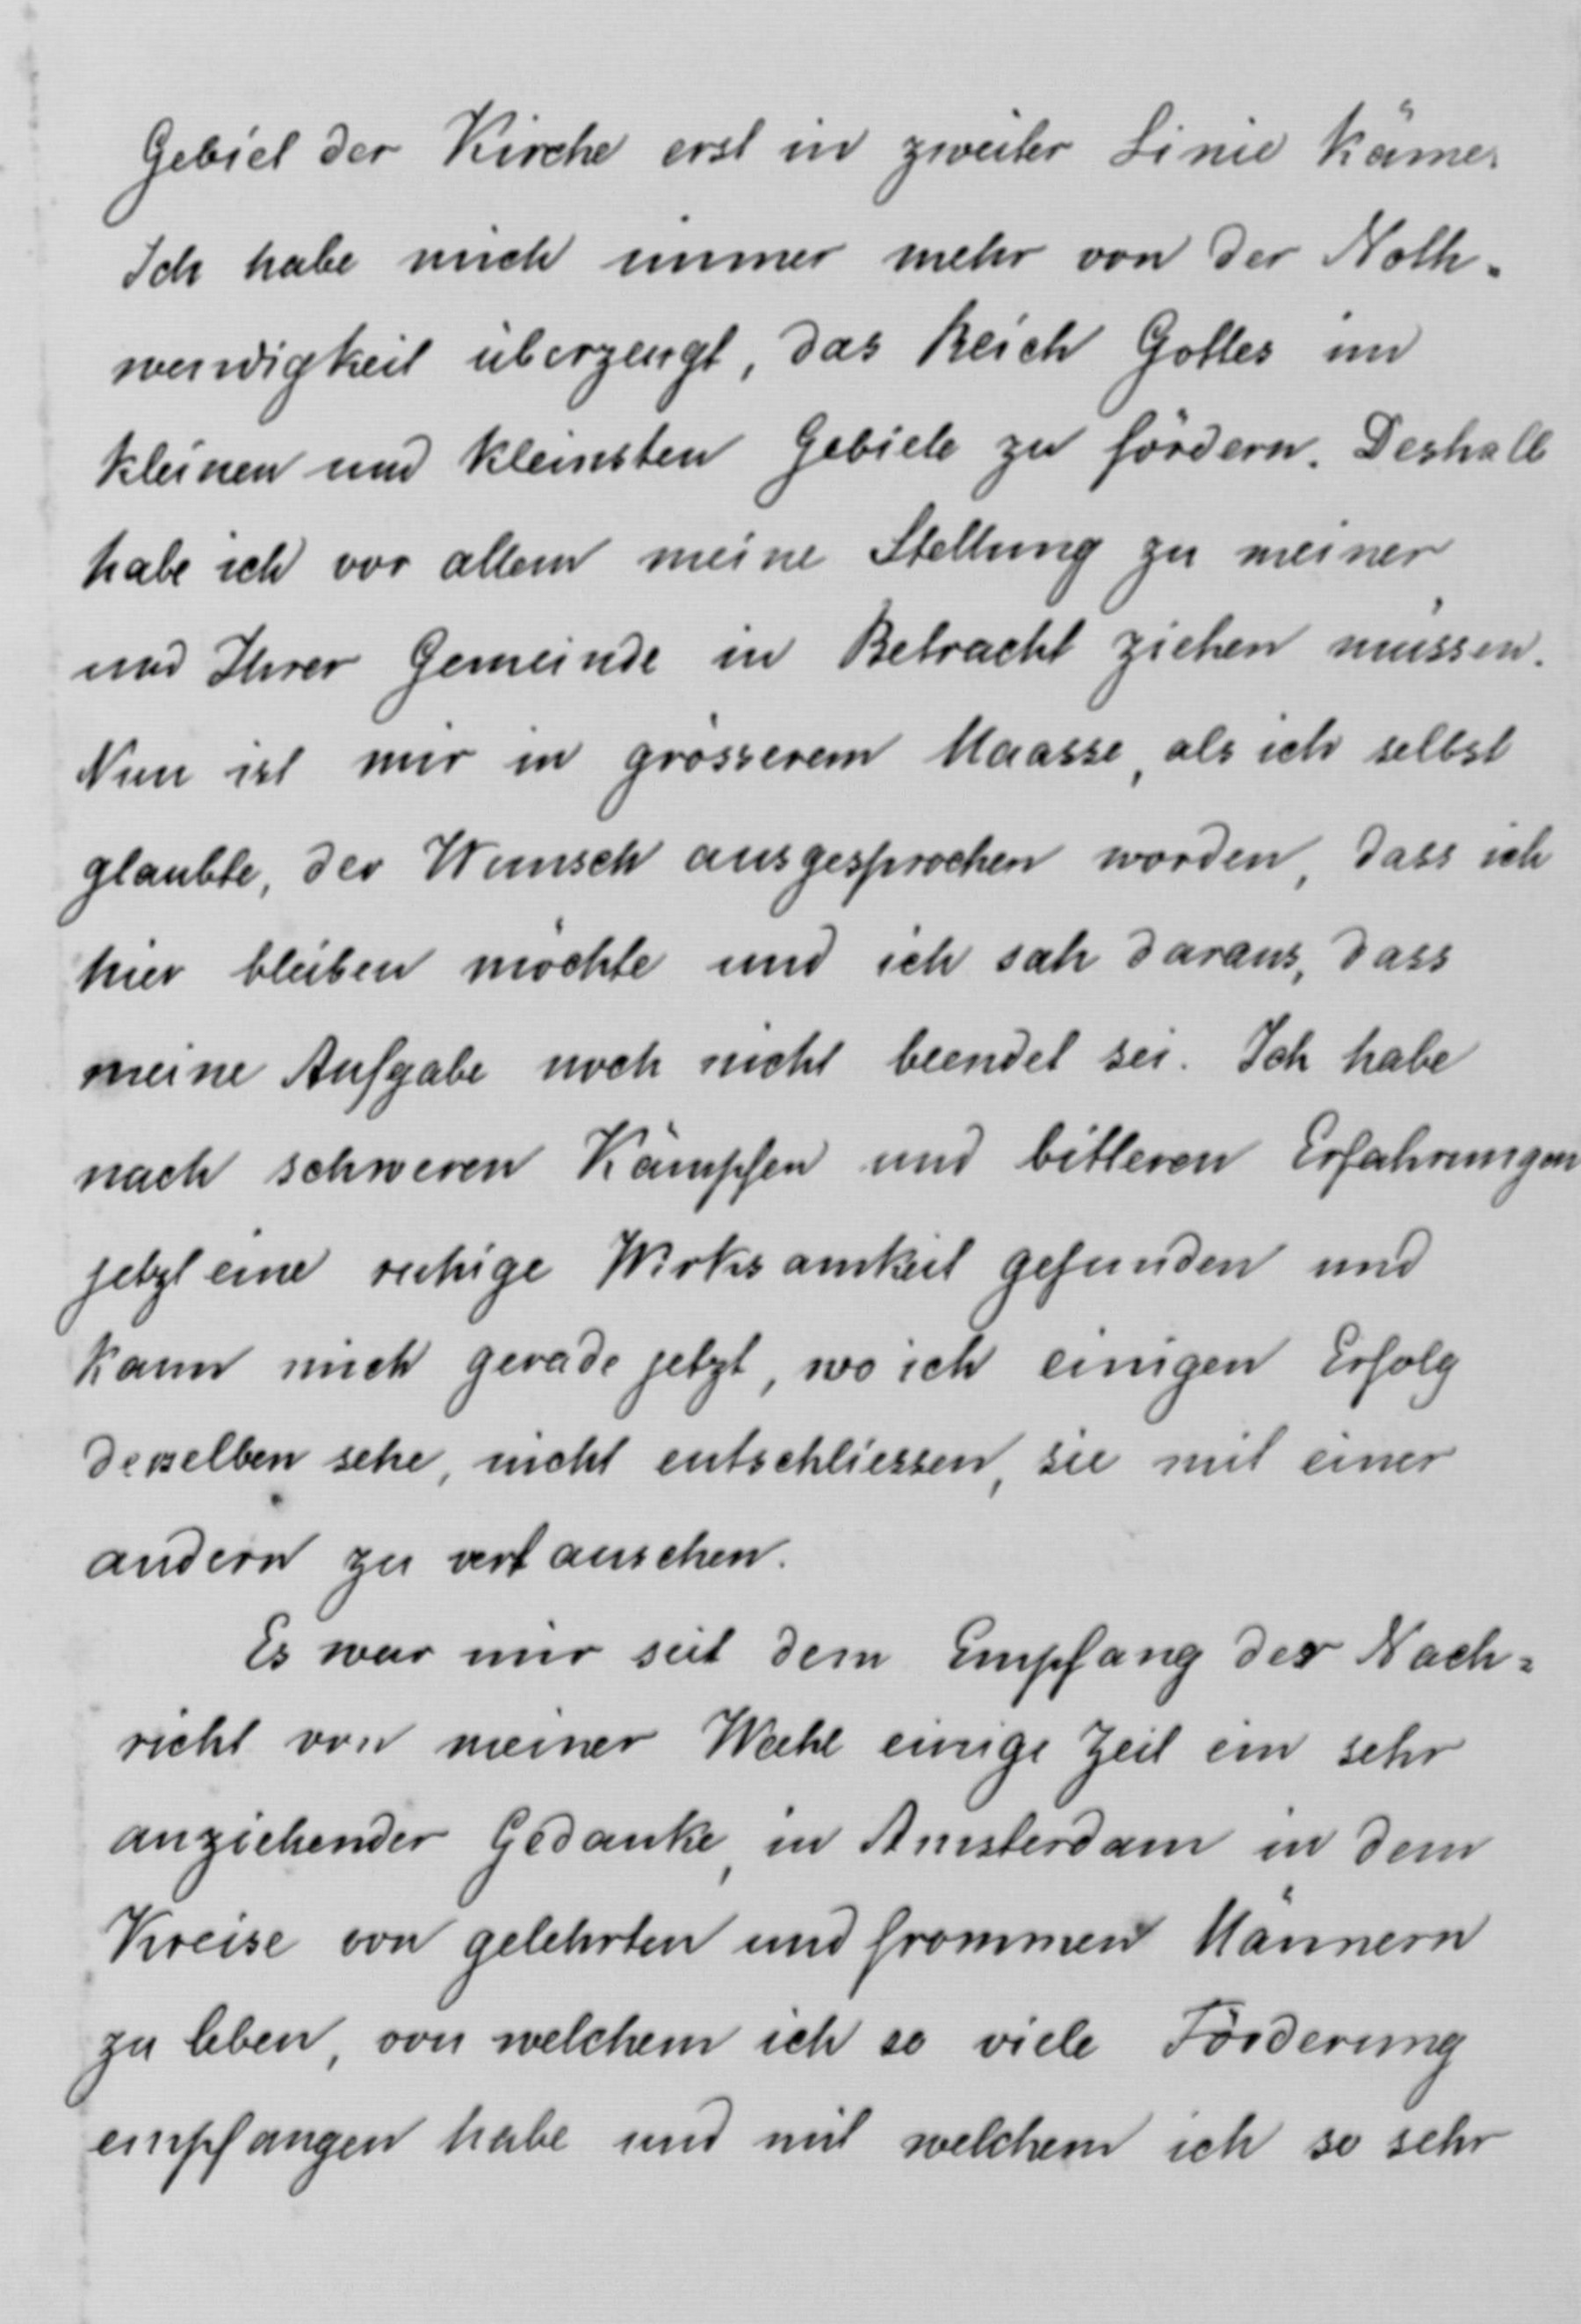 Gebiet der Kirche erst in zweiter Linie käme.
Ich habe mich immer mehr von der Noth-
wendigkeit überzeugt, das Reich Gottes im
kleinen und kleinsten Gebiete zu fördern. Deshalb
habe ich vor allem meine Stellung zu meiner
und Ihrer Gemeinde in Betracht ziehen müssen.
Nun ist mir in grösserem Maasse, als ich selbst
glaubte, der Wunsch ausgesprochen worden, dass ich
hier bleiben möchte und ich sah daraus, dass
meine Aufgabe noch nicht beendet sei. Ich habe
nach schweren Kämpfen und bitteren Erfahrungen
jetzt eine ruhige Wirksamkeit gefunden und
kann mich gerade jetzt, wo ich einigen Erfolg
derselben sehe, nicht entschliessen, sie mit einer
andern zu vertauschen.
Es war mir seit dem Empfang der Nach=
richt von meiner Wahl einige Zeit ein sehr
anziehender Gedanke, in Amsterdam in dem
Kreise von gelehrten und frommen Männern
zu leben, von welchem ich so viele Förderung
empfangen habe und mit welchem ich so sehr